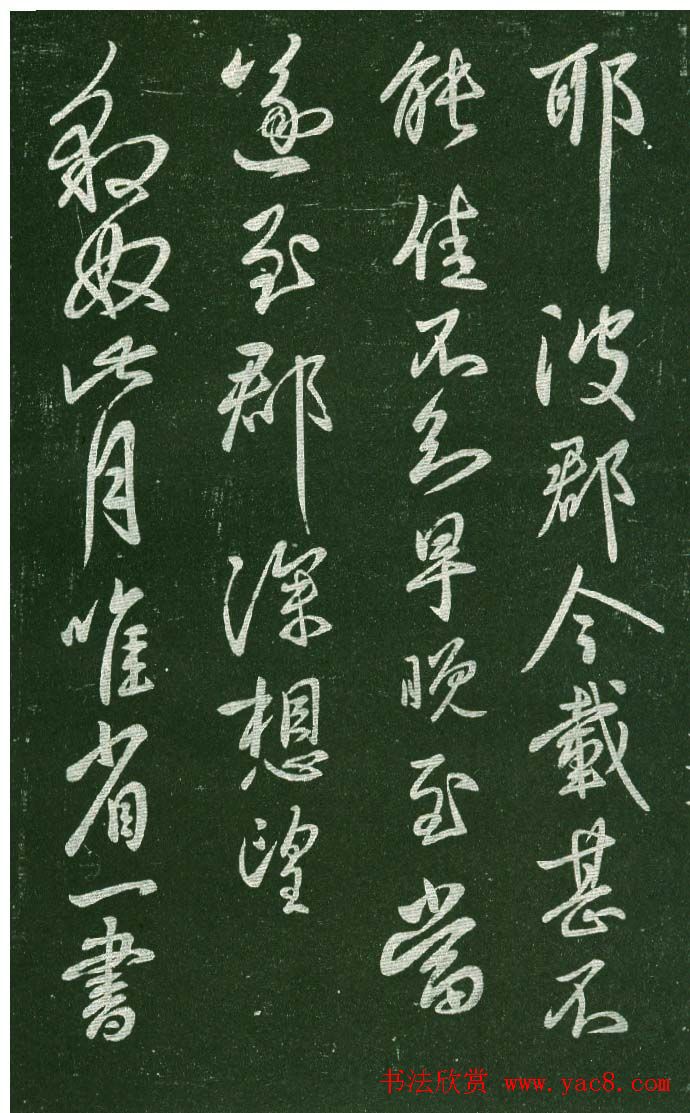 耶彼郡今載甚不
能佳不知早晚至當
遂至郡深想望
豹奴此月唯省一書
书法欣赏 www.yac8.com